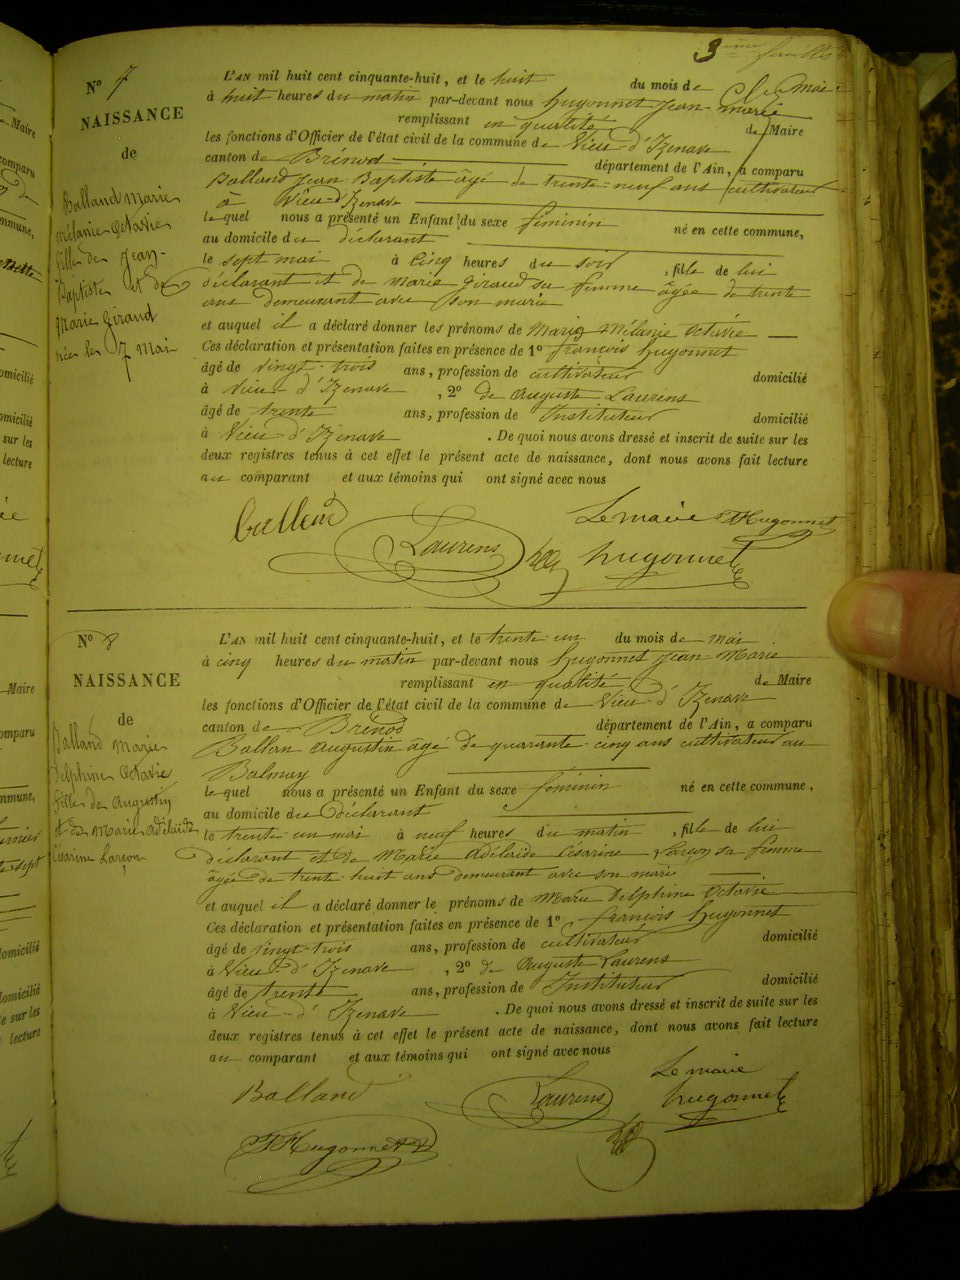 3ème feuillet
N° 7
NAISSANCE
de
Balland Marie
mélanie Octavie
fille de Jean-
Baptiste et de
Marie Giraud
née le 7 mai
L'AN mil huit cent cinquante-huit, et le huit du mois de Mai
à huit heures du matin par-devant nous hugonnet Jean-marie
remplissant en qualité de Maire
les fonctions d'Officier de l'état civil de la commune de Vieu d'Izenave
canton de Brénod département de l'Ain, a comparu
Balland Jean Baptiste âgé de trente-neuf ans cultivateur
à Vieu d'Izenave
lequel nous a présenté un Enfant du sexe féminin né en cette commune,
au domicile du déclarant
le sept mai à cinq heures du soir, fille de lui
déclarant et de marie Giraud sa femme âgée de trente
ans demeurant avec son marie
et auquel il a déclaré donner les prénoms de Marie Mélanie Octavie
Ces déclaration et présentation faites en présence de 1° françois hugonnet
âgé de vingt-trois ans, profession de cultivateur domicilié
à Vieu d'Izenave, 2° de Auguste Laurens
âgé de trente ans, profession de Instituteur domicilié
à Vieu d'Izenave. De quoi nous avons dressé et inscrit de suite sur les
deux registres tenus à cet effet le présent acte de naissance, dont nous avons fait lecture
au comparant et aux témoins qui ont signé avec nous
Balland
Laurens
Le maire
hugonnet
fHugonnet
N° 8
NAISSANCE
de
Balland Marie
Delphine Octavie
fille de Augustin
et de Marie Adélaïde
Césarine Larçon
L'AN mil huit cent cinquante-huit, et le trente-un du mois de mai
à cinq heures du matin par-devant nous hugonnet Jean-Marie
remplissant en qualité de Maire
les fonctions d'Officier de l'état civil de la commune de Vieu d'Izenave
canton de Brénod département de l'Ain, a comparu
Ballan Augustin âgé de quarante-cinq ans cultivateur au
Balmay
lequel nous a présenté un Enfant du sexe féminin né en cette commune,
au domicile du Déclarant
le trente-un mai à neuf heures du matin, fille de lui
déclarant et de Marie Adélaïde Césarine Larçon sa femme
âgée de trente-huit ans demeurant avec son marie
et auquel il a déclaré donner le prénoms de Marie Delphine Octavie
Ces déclaration et présentation faites en présence de 1° françois hugonnet
âgé de vingt-trois ans, profession de cultivateur domicilié
à Vieu-d'Izenave, 2° de Auguste Laurens
âgé de trente ans, profession de Instituteur domicilié
à Vieu-d'Izenave. De quoi nous avons dressé et inscrit de suite sur les
deux registres tenus à cet effet le présent acte de naissance, dont nous avons fait lecture
au comparant et aux témoins qui ont signé avec nous
Balland
Laurens
Le maire
hugonnet
fHugonnet